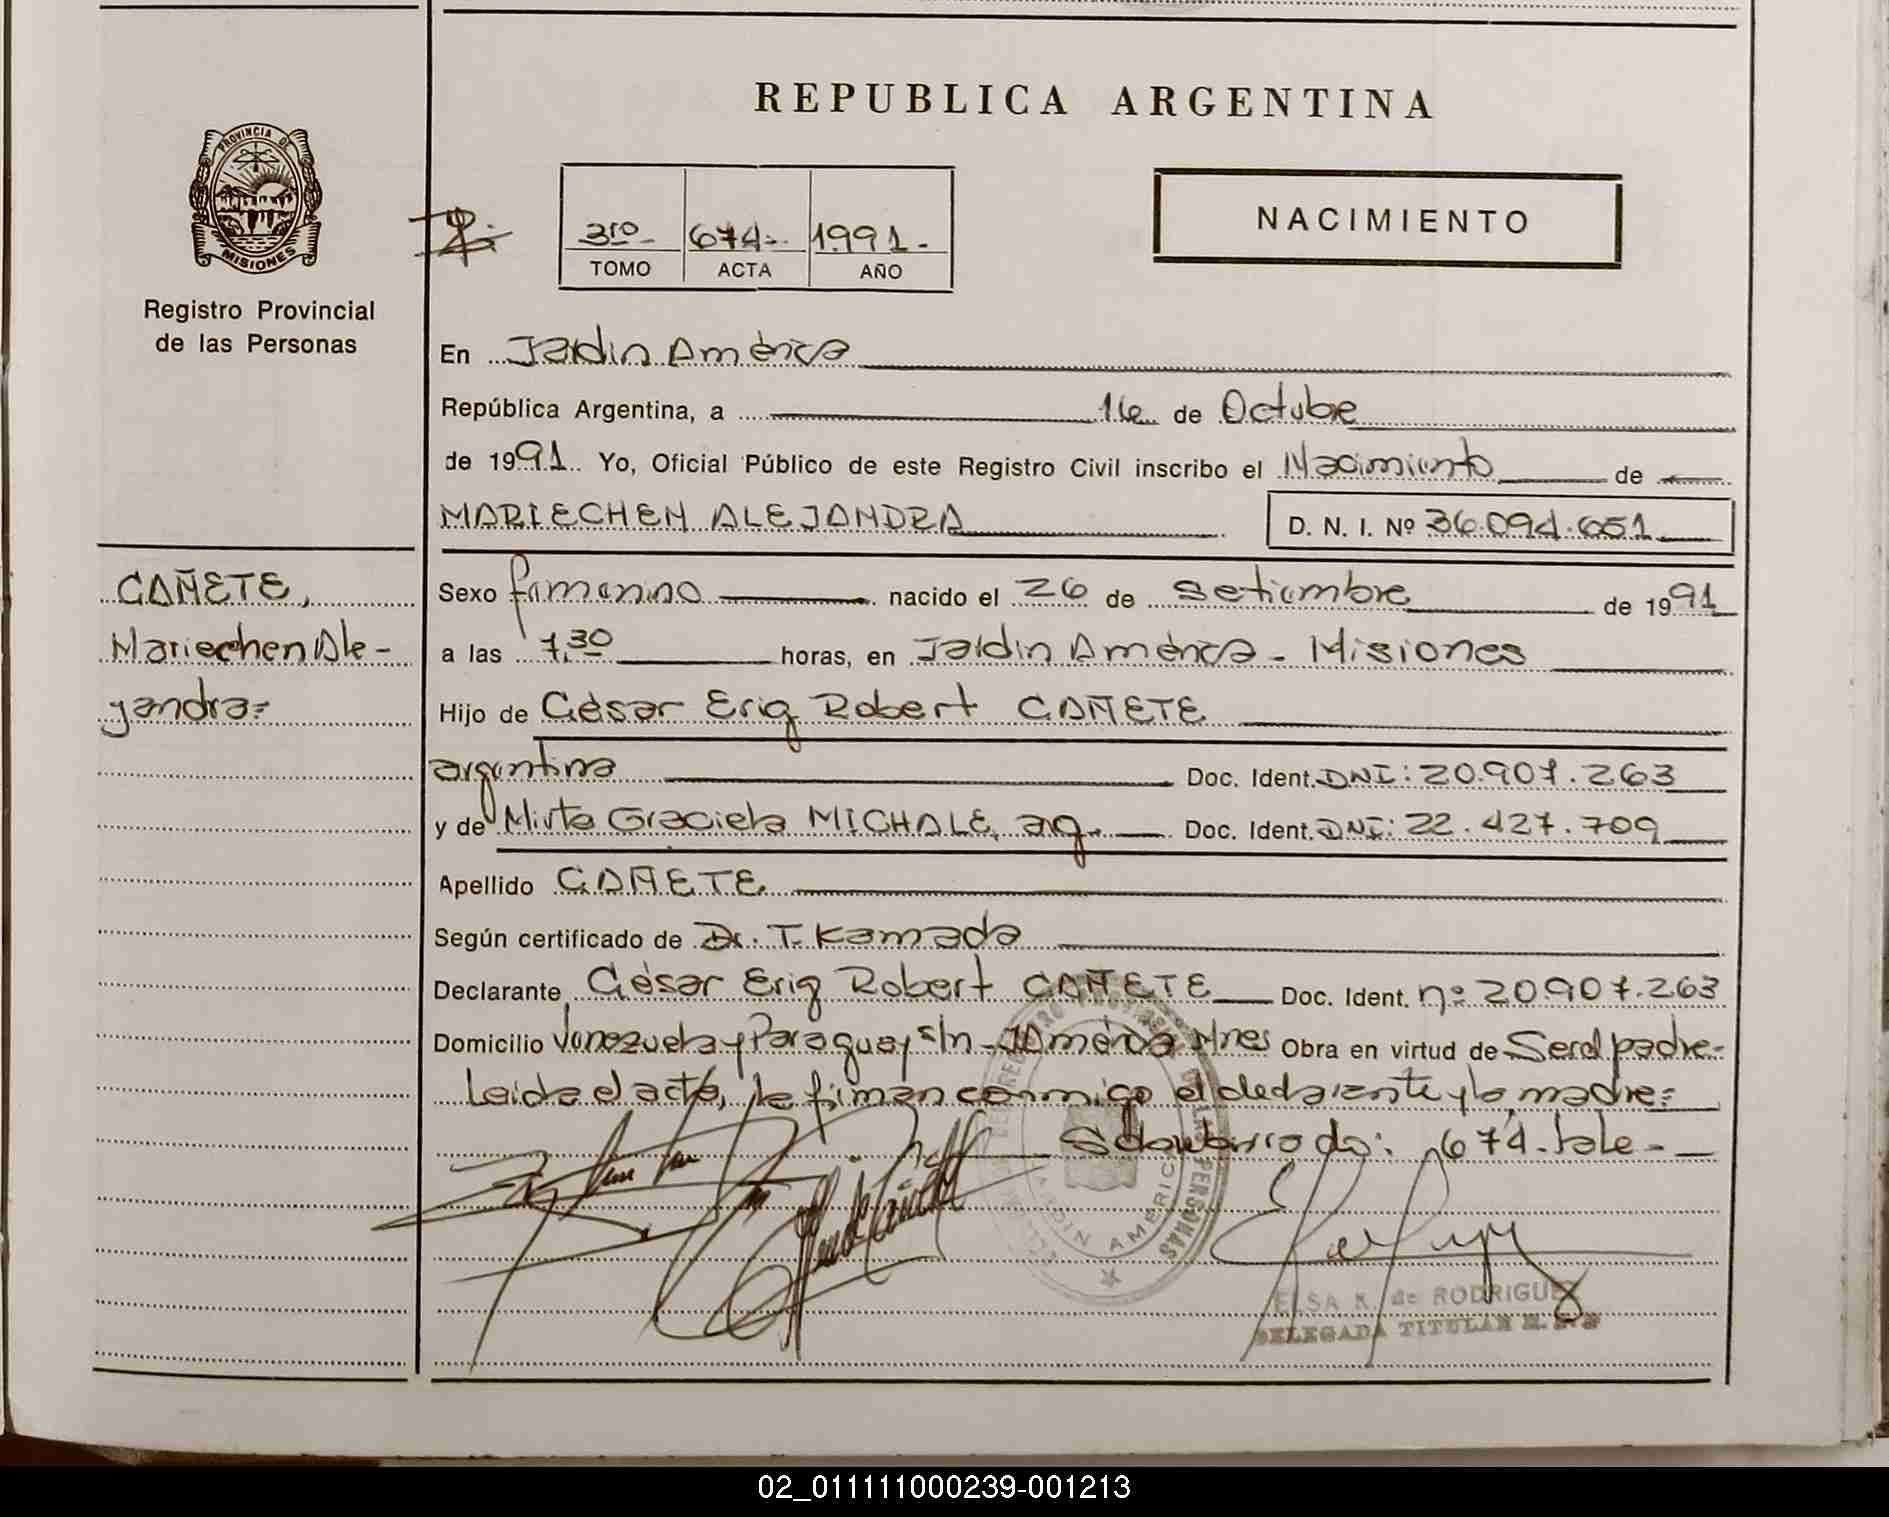 REPUBLICA ARGENTINA
PROVINCIA DE MISIONES
Registro Provincial
de las Personas
3ro 674 1991
TOMO ACTA AÑO
NACIMIENTO
En Jardín América
República Argentina, a 16 de Octubre
de 1991 Yo, Oficial Público de este Registro Civil inscribo el Nacimiento de
MARIECHEN ALEJANDRA D. N. I. Nº 36.094.651
CAÑETE,
Mariechen Ale-
jandra=
Sexo femenino nacido el 26 de Setiembre de 1991
a las 7,30 horas, en Jardín América - Misiones
Hijo de César Eriq Robert CAÑETE
argentina Doc. Ident. DNI: 20.907.263
y de Mirta Graciela MICHALE, arg. Doc. Ident. DNI: 22.427.709
Apellido CAÑETE
Según certificado de Dr. T. Kamada
Declarante César Eriq Robert CAÑETE Doc. Ident. nº 20.907.263
Domicilio Venezuela y Paraguay s/n - J. América Mnes Obra en virtud de Ser el padre-
Leida el acta, la firman conmigo el declarante y la madre=
Sobreborrado: 674 - Vale -
JARDIN AMERICA
ELSA K. de RODRIGUEZ
DELEGADA TITULAR
02_011111000239-001213